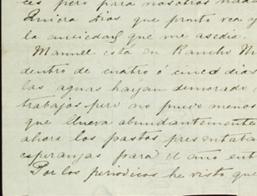 ces pero para nosotros nada
Quiera Dios que pronto sea y
la ansiedad que me asedia.
Manuel está en Rancho N
dentro de cuatro ó cinco dias
las aguas hayan demorado
trabajos pero no puede menos
que llueva abundantemente
ahora los pastos presentaba
esperanzas para el año ent
Por los periodicos he visto que